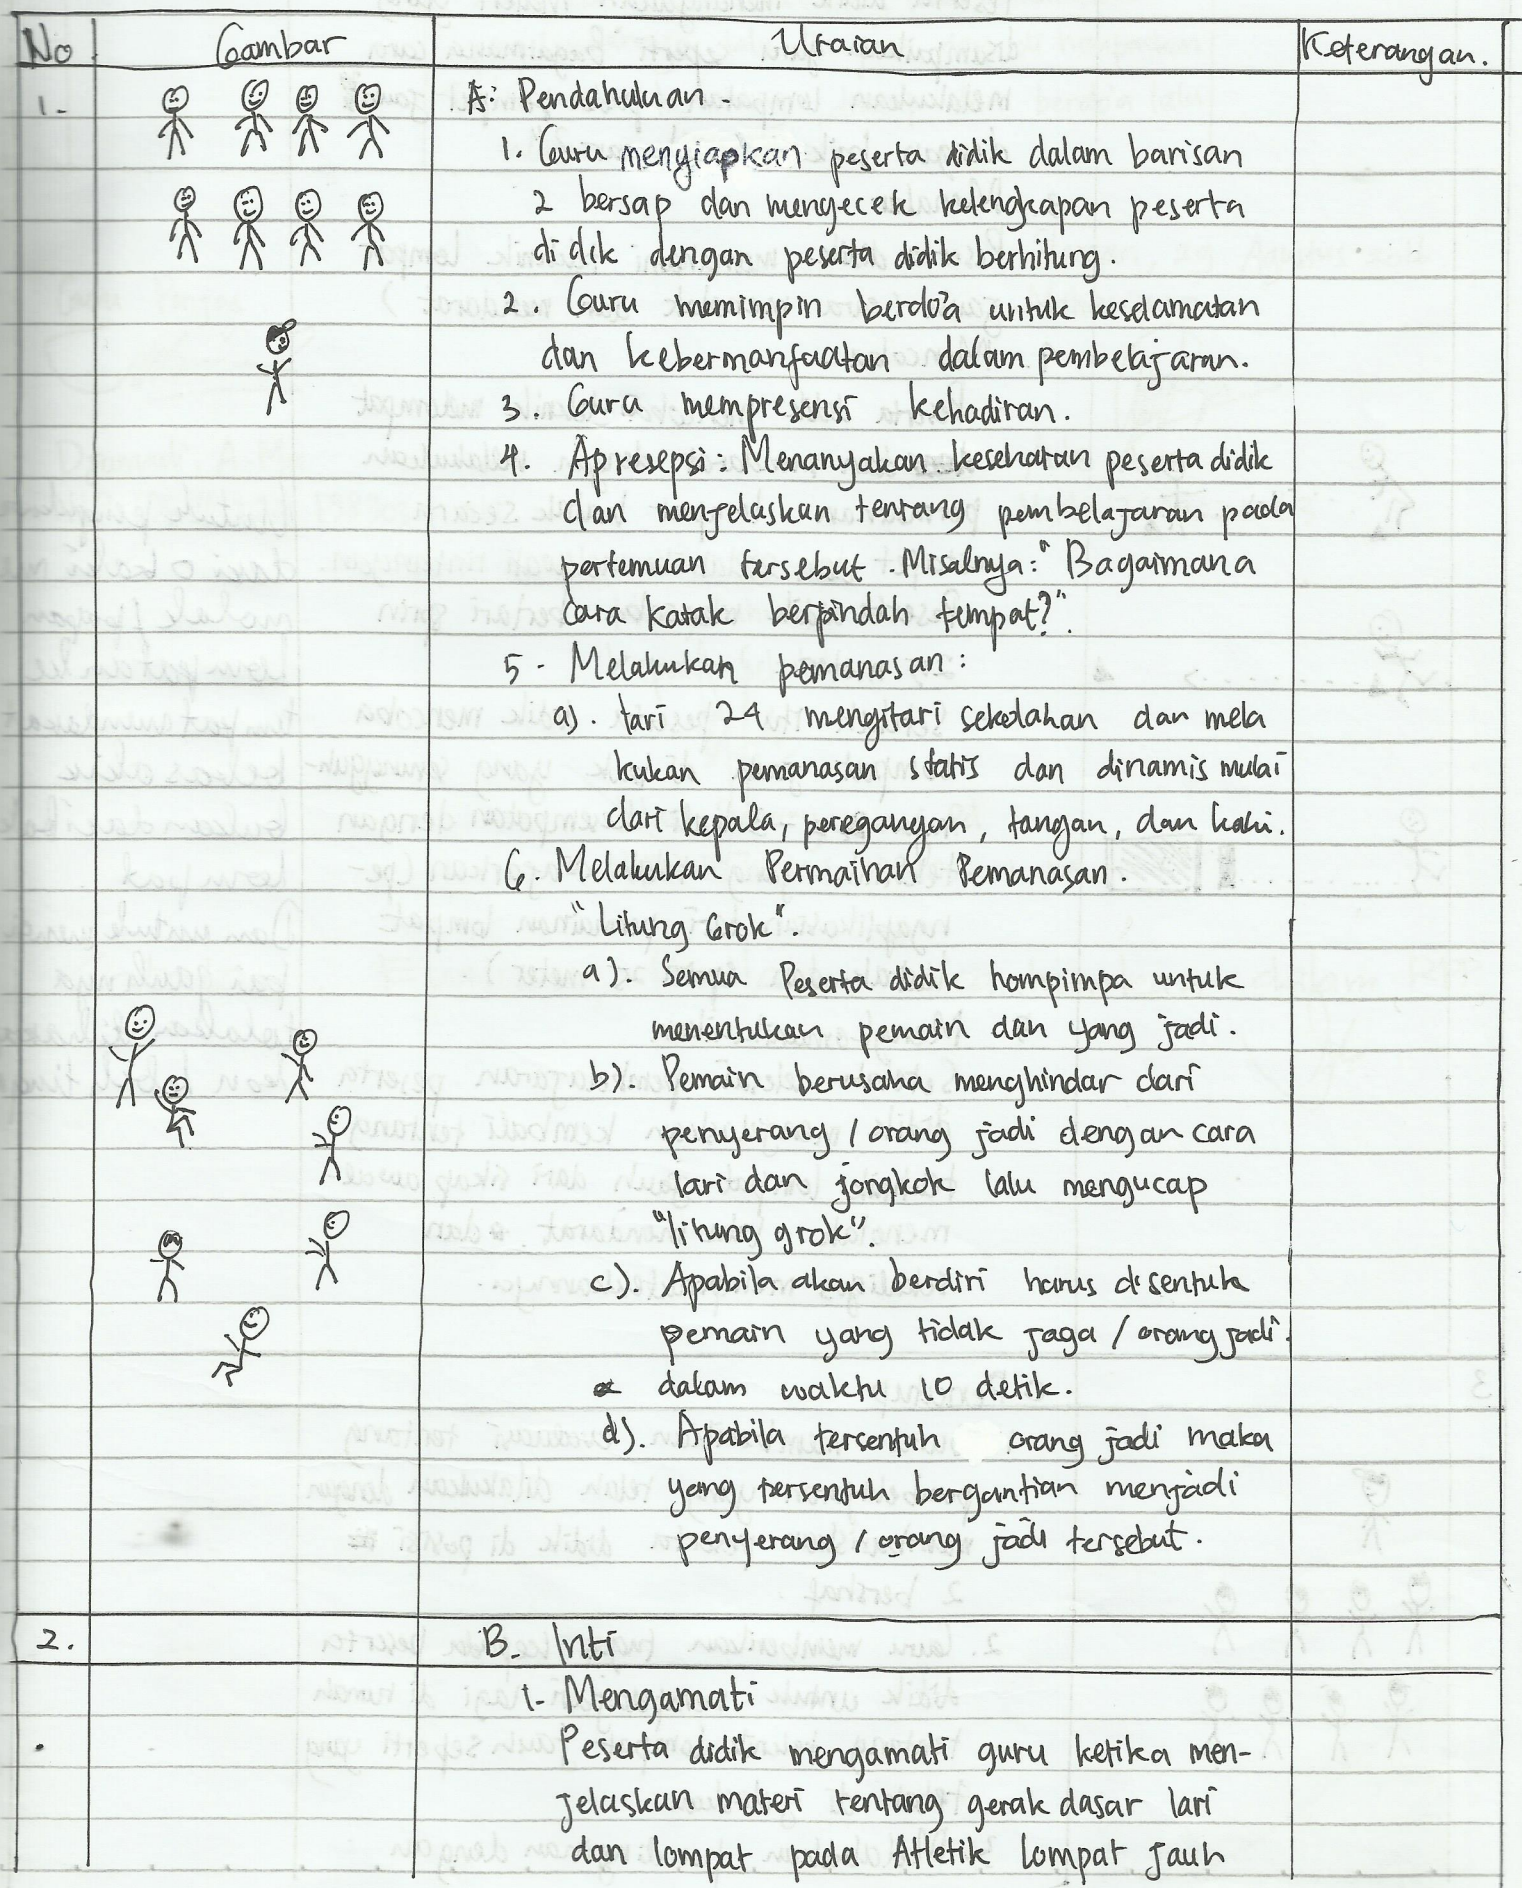 No Gambar Uraian Keterangan.
1. A. Pendahuluan
1. Guru menyiapkan peserta didik dalam barisan
2 bersap dan mengecek kelengkapan peserta
didik dengan peserta didik berhitung.
2. Guru memimpin berdo'a untuk keselamatan
dan kebermanfaatan dalam pembelajaran.
3. Guru mempresensi kehadiran.
4. Apresepsi: Menanyakan kesehatan peserta didik
dan menjelaskan tentang pembelajaran pada
pertemuan tersebut. Misalnya: "Bagaimana
cara katak berpindah tempat?".
5. Melakukan pemanasan:
a). tari 24 mengitari sekolahan dan mela
kukan pemanasan statis dan dinamis mulai
dari kepala, peregangan, tangan, dan kaki.
6. Melakukan Permainan Pemanasan.
"Litung Grok".
a). Semua Peserta didik hompimpa untuk
menentukan pemain dan yang jadi.
b). Pemain berusaha menghindar dari
penyerang / orang jadi dengan cara
lari dan jongkok lalu mengucap
"litung grok".
c). Apabila akan berdiri harus disentuh
pemain yang tidak jaga / orang jadi.
dalam waktu 10 detik.
d). Apabila tersentuh orang jadi maka
yang tersentuh bergantian menjadi
penyerang / orang jadi tersebut.
2. B. Inti
1. Mengamati
Peserta didik mengamati guru ketika men-
jelaskan materi tentang gerak dasar lari
dan lompat pada Atletik lompat jauh